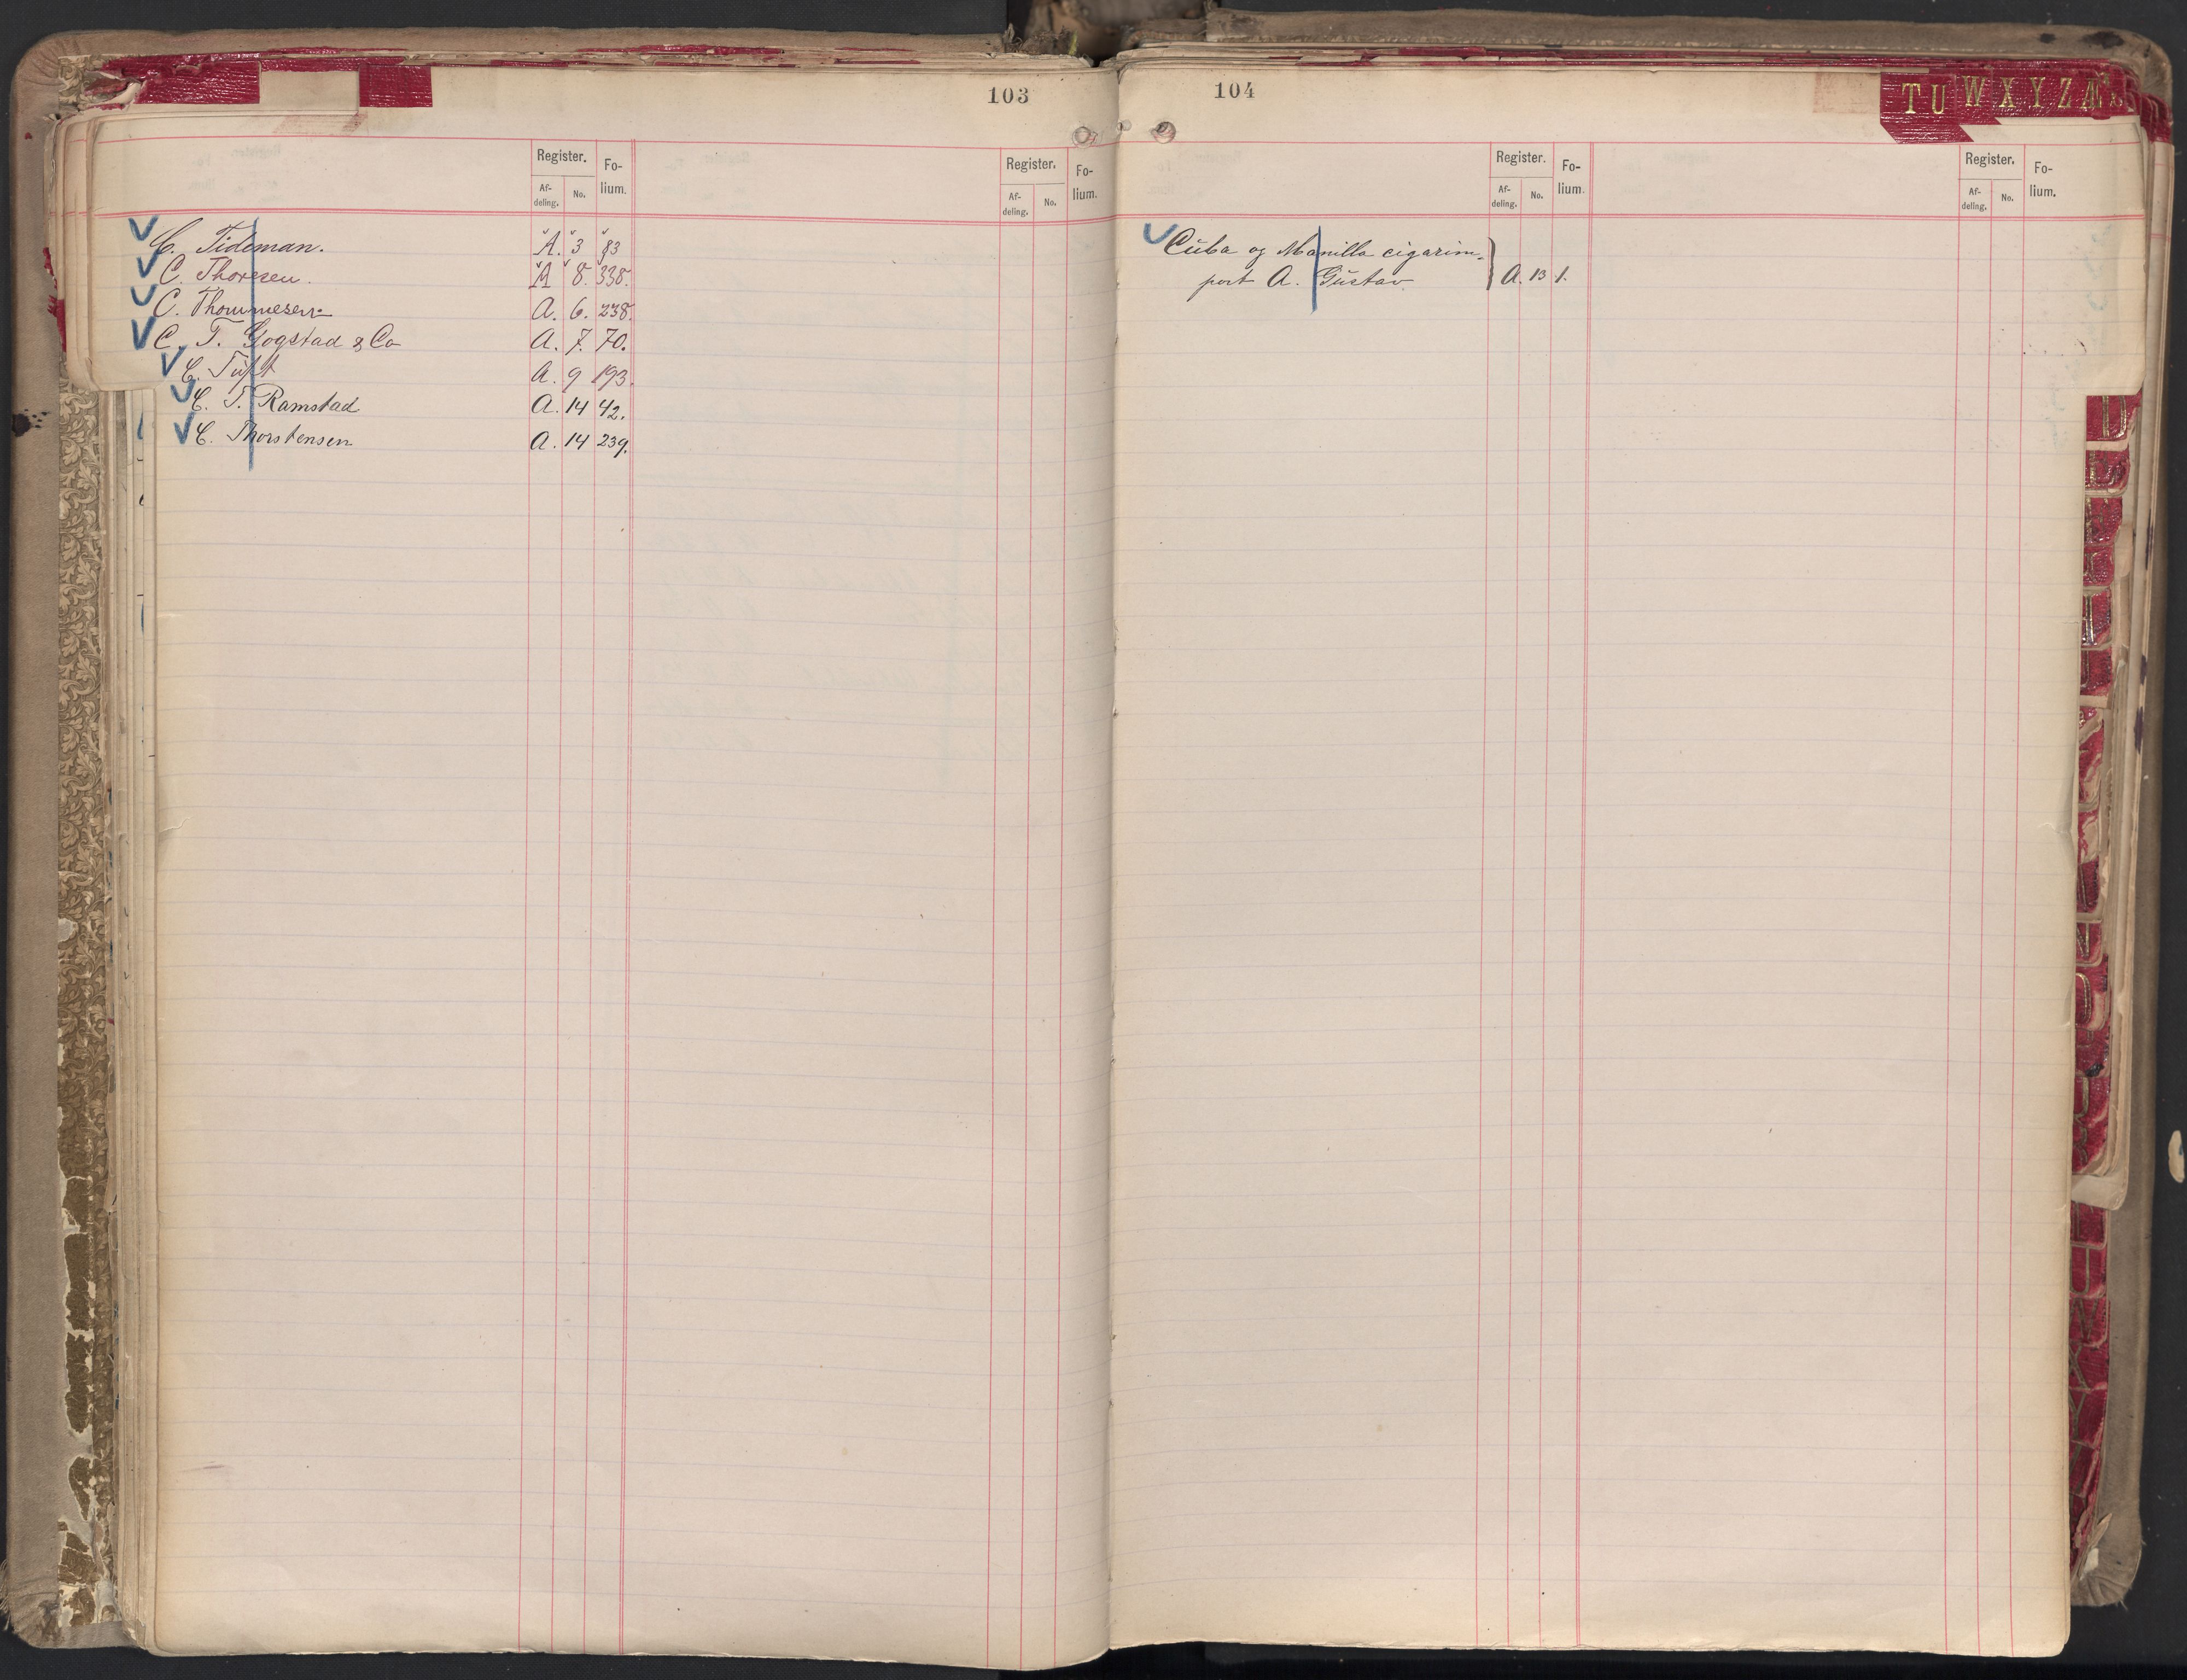 103
Register. Fo-
lium.
Af-
deling. No.
Register. Fo-
lium.
Af-
deling. No.
C. Tideman. A. 3 83
C. Thoresen. A 8. 338.
C. Thommesen A. 6. 238.
C. T. Gogstad & Co A. 7. 70.
C. Tuft A. 9 193.
C. T. Ramstad A. 14 42.
C. Thorstensen A. 14 239.
104
T U W X Y Z Æ
Register. Fo-
lium.
Af-
deling. No.
Register. Fo-
lium.
Af-
deling. No.
Cuba og Manilla cigarim-
port A. Gustav A. 13 1.